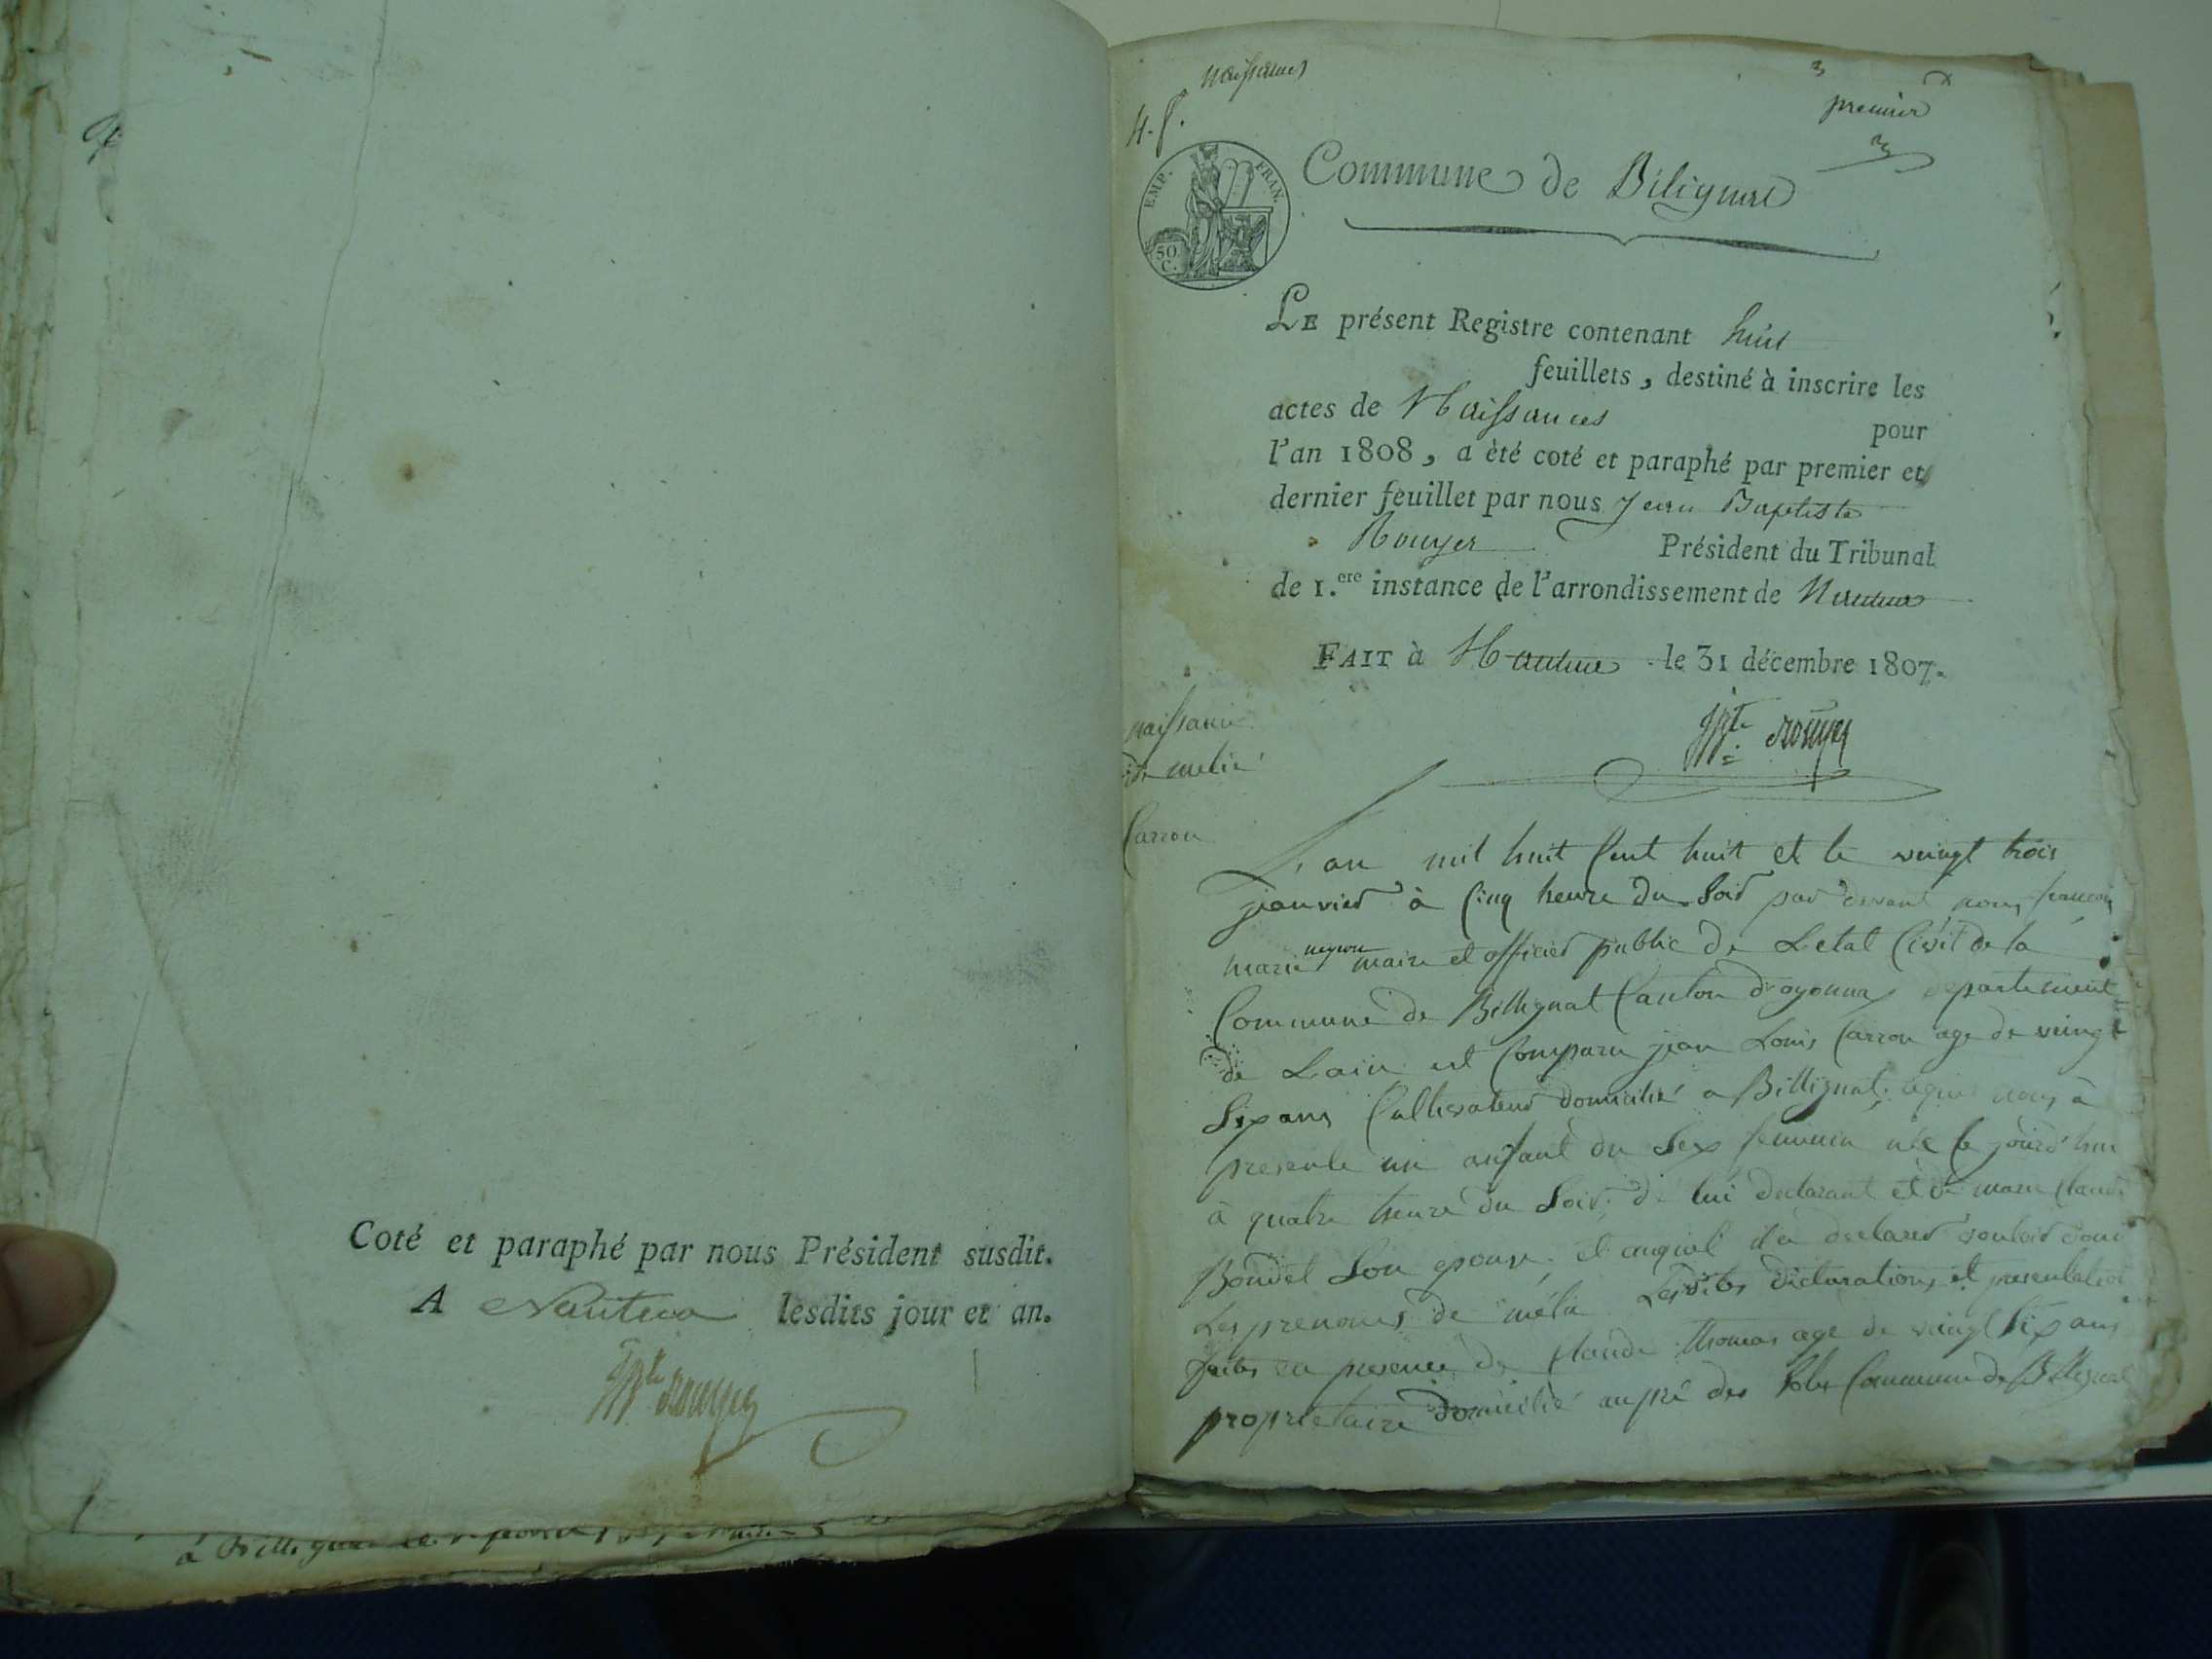 Coté et paraphé par nous Président susdit.
A Nantua lesdits jour et an.
JBte Rouyer
naissances
3
premier
4. f.
EMP. FRAN.
50 C.
Commune de Bilignat
LE présent Registre contenant huit
feuillets, destiné à inscrire les
actes de Naissances pour
l'an 1808, a èté coté et paraphé par premier et
dernier feuillet par nous Jean Baptiste
Rouyer Président du Tribunal
de 1.ere instance de l'arrondissement de Nantua
FAIT à Nantua le 31 décembre 1807.
JBte Rouyer
naissance
de melie
Carron
L'an mil huit Cent huit et le veingt trois
janvier à Cinq heure du Soir par devant nous francois
marie neyron maire et officier public de Letat Civil de la
Commune de Billignat Canton d'oyonnax departement
de Lain est Comparu jean Louis Carron age de veingt
Six ans Cultivateur domicilié a Billignat lequel nous à
presente un anfant du Sex feminin née ce jourd'hui
à quatre heure du Soir de lui declarant et de marie Claude
Bondet Son epouse et auquel il a declarer vouloir donner
Les prenoms de mélie Lesdites declarations et presentation
faites en presence de Claude Thomas age de veingt Six ans
proprietaire domicilié au pré des Commune de Billignat